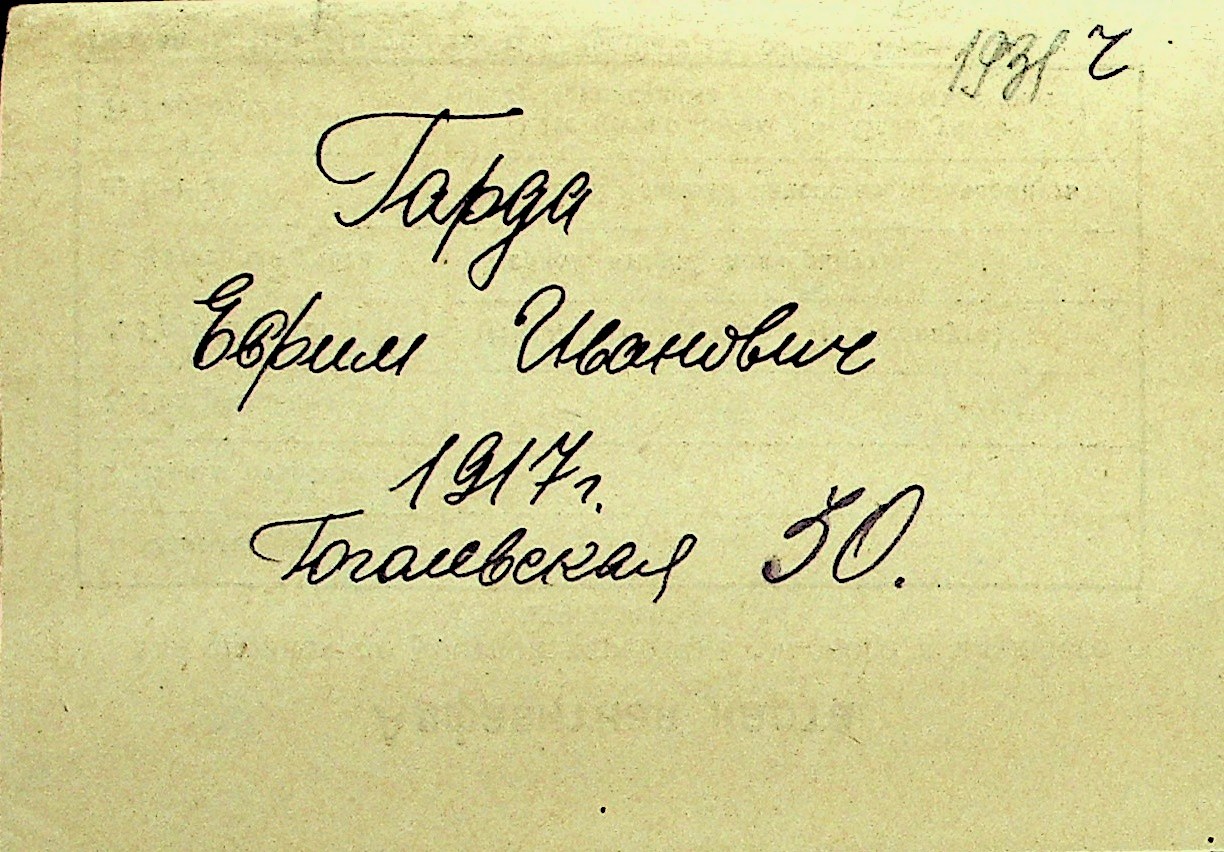 1931 г
Гарда
Ефрим Иванович
1917г.
Гоголевская 30.